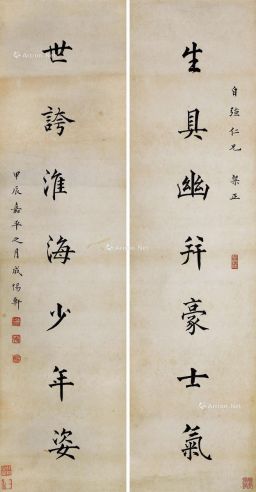 自強仁兄 粲正
生具幽并豪士氣
世誇淮海少年姿
甲辰嘉平之月成惕軒